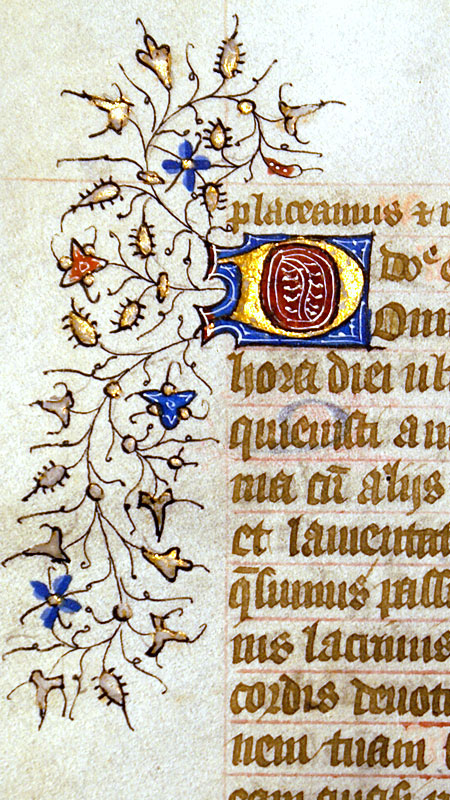 placeamus ⁊
DOmi
hora diei ult
quieuisti a m
ma cū alijs
et lamentat
q̄sumus pass
nis lacrimis
cordis deuoti
nem tuam
eam quas